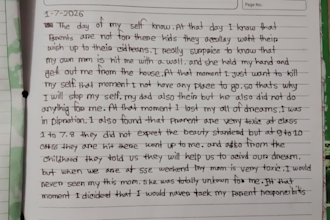 Page No.
1-7-2026
The day of my self know. At that day I know that
Parents are not for there kids they actully want their
wish up to their childrens. I really surprise to know that
my own mom is hit me with a wall. and she held my hand and
get out me from the house. At that moment I just want to kill
my self. that moment I not have any place to go. so that's why
I will stop my self, my dad also their but he also did not do
anything for me. At that moment I lost my all of dreams. I was
in I also found that parent are very toxic at class
1 to 7.8 they did not expect the beauty standard but at 9 to 10
class they are hit there want up to me. and also from the
childhood they told us they will help us to our dream.
but when we are at my mom is very toxic. I would
never seen my this mom. She was totally unkown for me. At that
moment I dicided that I would naver tack my parent responsibilits